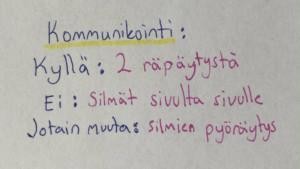 Kommunikointi:
Kyllä: 2 räpäytystä
Ei: Silmät sivulta sivulle
Jotain muuta: silmien pyöräytys